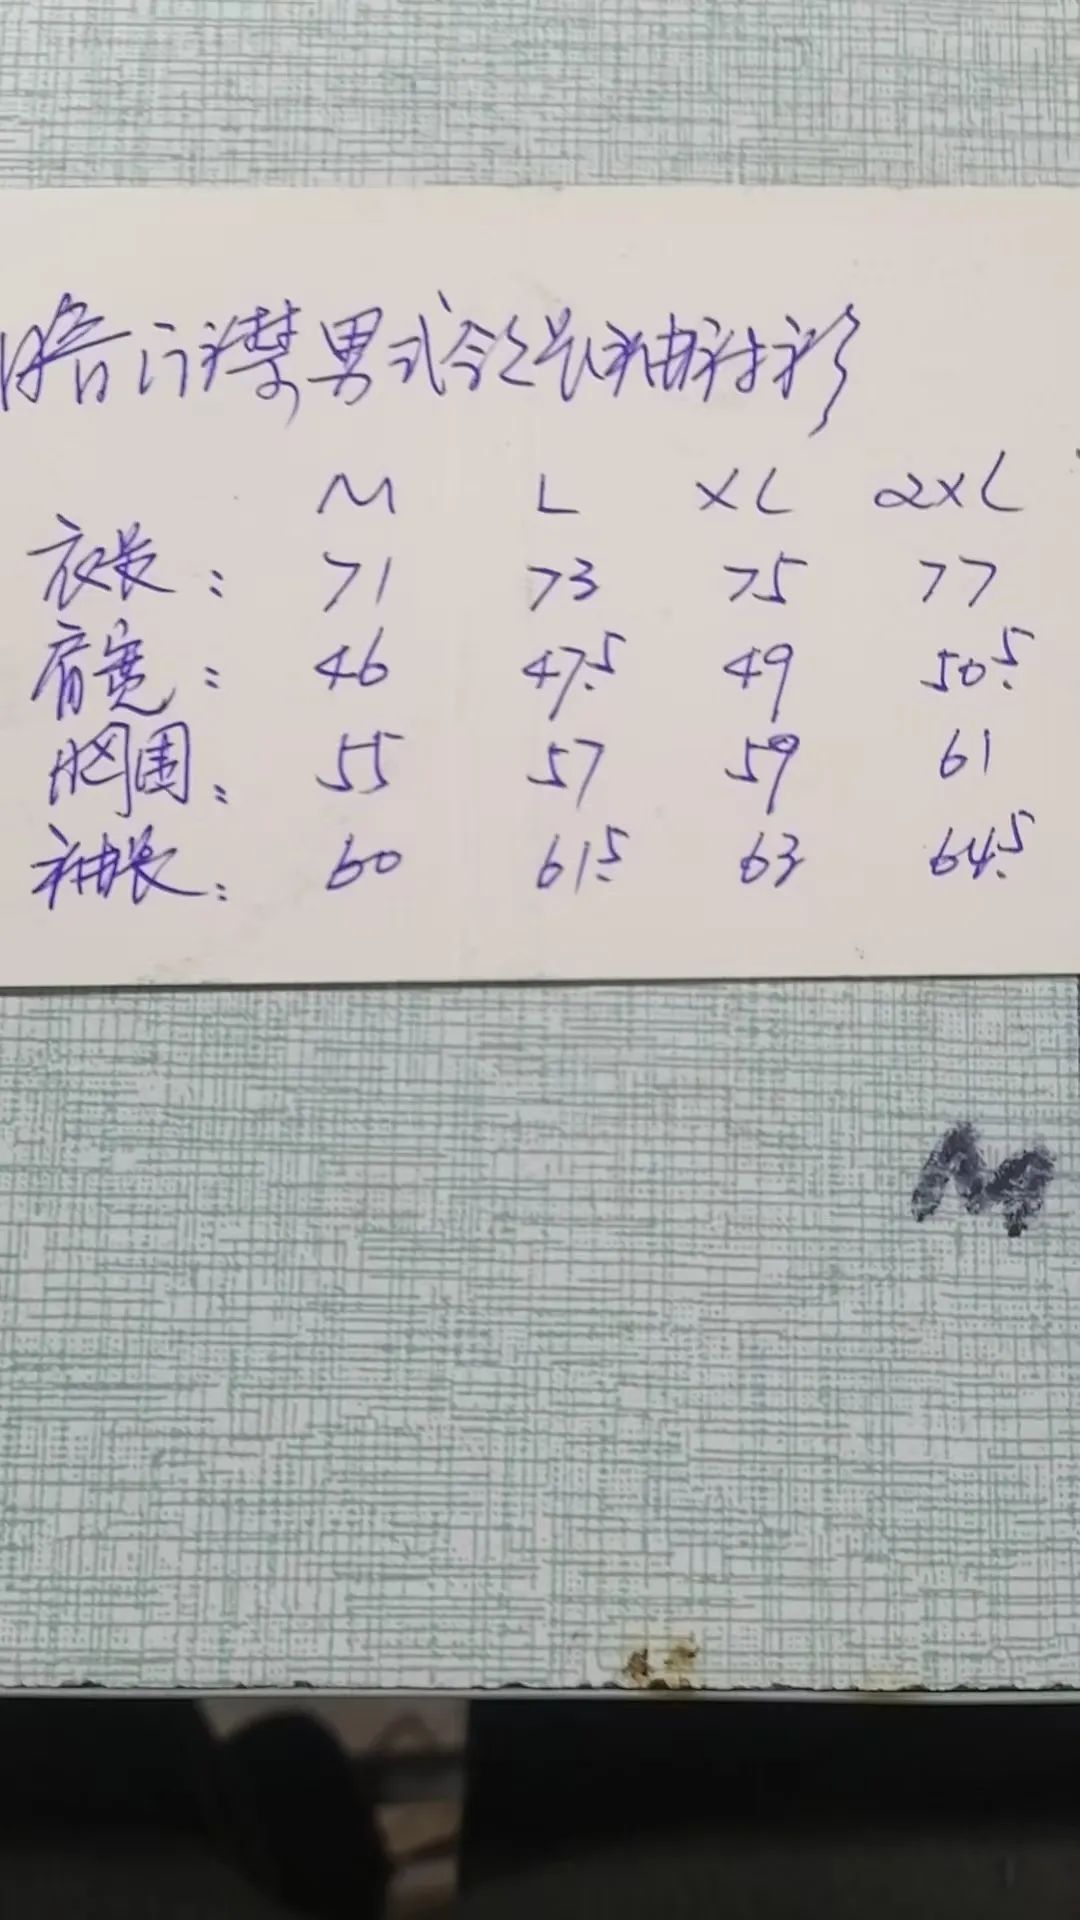 男式领长袖衬衫
M L XL 2XL
衣长: 71 73 75 77
肩宽: 46 47.5 49 50.5
胸围: 55 57 59 61
袖长: 60 61.5 63 64.5
M